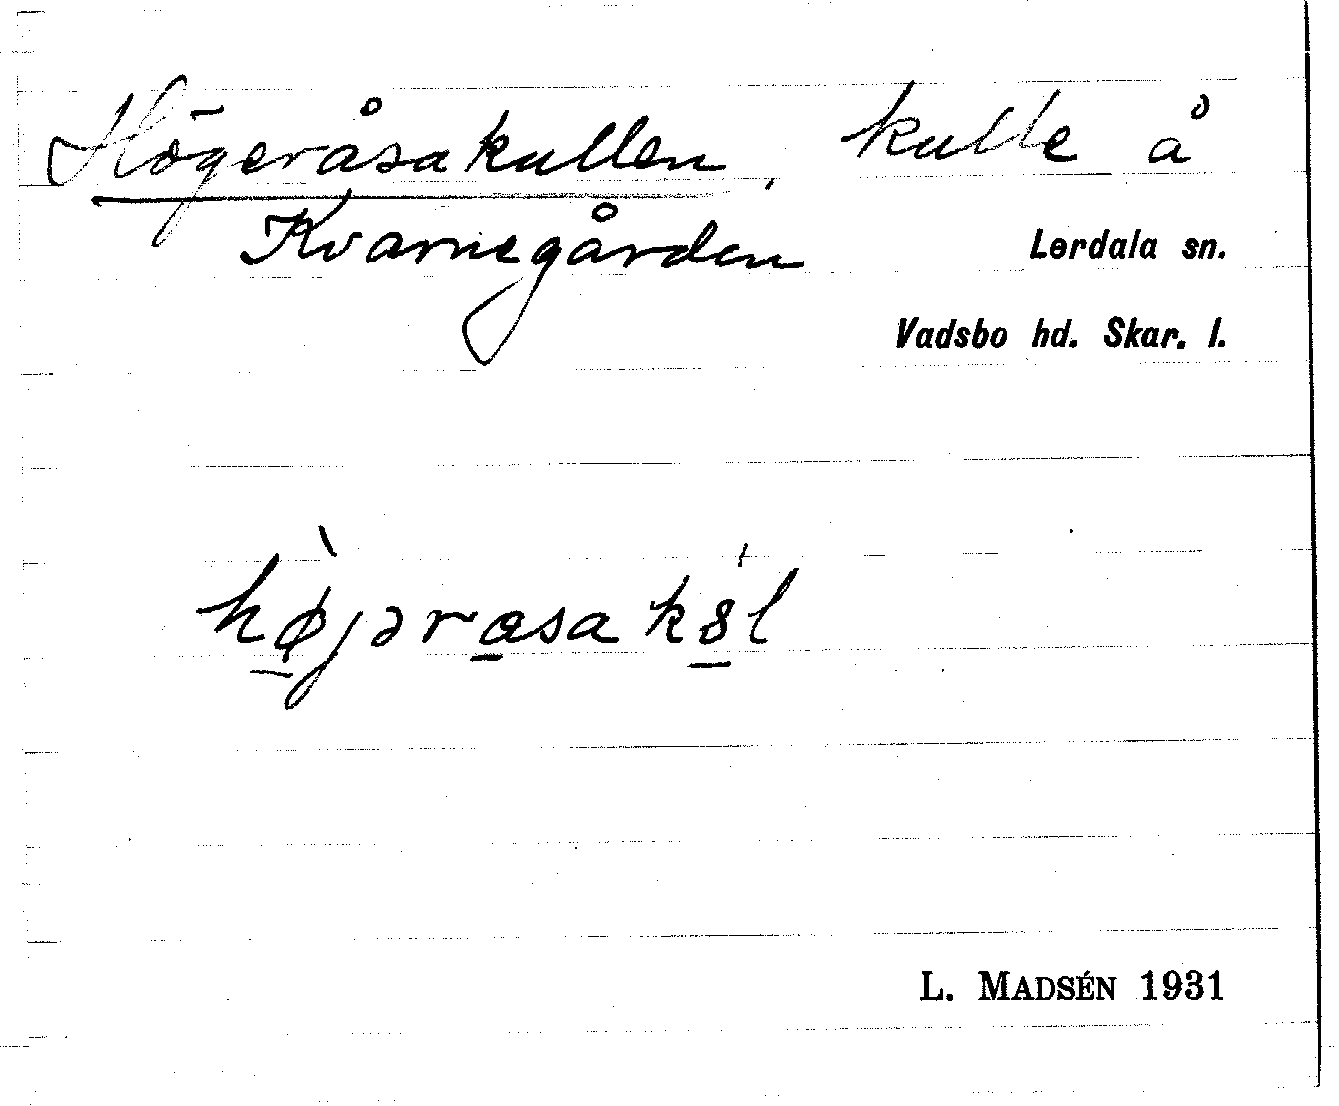 Högeråsakullen, kulle å
Kvarnegården
Lerdala sn.
Vadsbo hd. Skar. l.
hø̠̀jəra̠sak8̠́l
L. MADSÉN 1931